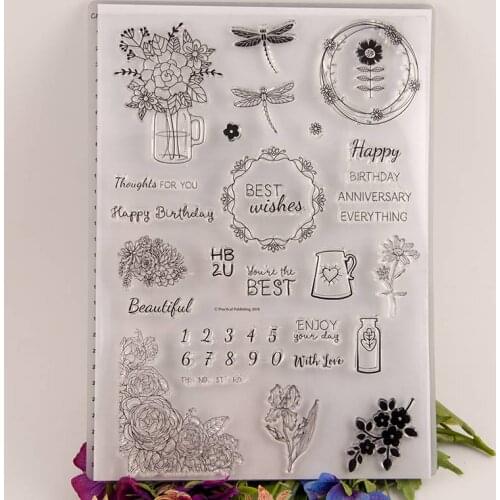 Happy
BIRTHDAY
ANNIVERSARY
EVERYTHING
Thoughts FOR YOU
Happy Birthday
BEST
wishes
HB
2U
You're the
BEST
Beautiful
© Practical Publishing 2018
1 2 3 4 5
6 7 8 9 0
TH ND ST RD
ENJOY
your day
With Love